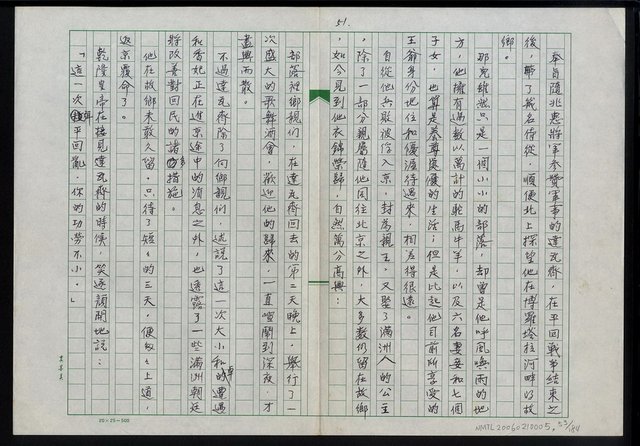 51.
奉旨隨兆惠將軍參贊軍事的達瓦齊，在平回戰事結束之
後，帶了幾名侍從，順便北上探望他在博羅塔拉河畔的故
鄉。
那兒雖然只是一個小小的部落，却曾是他呼風喚雨的地
方，他擁有過數以萬計的駝馬牛羊，以及六名妻妾和七個
子女，也算是養尊處優的生活；但是比起他目前所享受的
王爺身份地位和優渥待遇來，相差得很遠。
自從他兵敗被俘入京，封為親王，又娶了滿洲人的公主
，除了一部分親屬隨他同往北京之外，大多數仍留在故鄉
，如今見到他衣錦榮歸，自然萬分高興：
部落裡鄉親們，在達瓦齊回去的第二天晚上，舉行了一
次盛大的歌舞酒會，歡迎他的歸來，一直喧鬧到深夜，才
盡興而散。
不過達瓦齊除了向鄉親們，述說了這一次大小和卓的遭遇
和香妃正在進京途中的消息之外，也透露了一些滿洲朝廷
將改善對回民的諸多措施。
他在故鄉未敢久留，只待了短短的三天，便匆匆上道，
返京覆命了。
乾隆皇帝在接見達瓦齊的時候，笑逐顏開地說：
「這一次平回亂，你的功勞不小。」
20×25=500
NMTL20060210005.
53/184